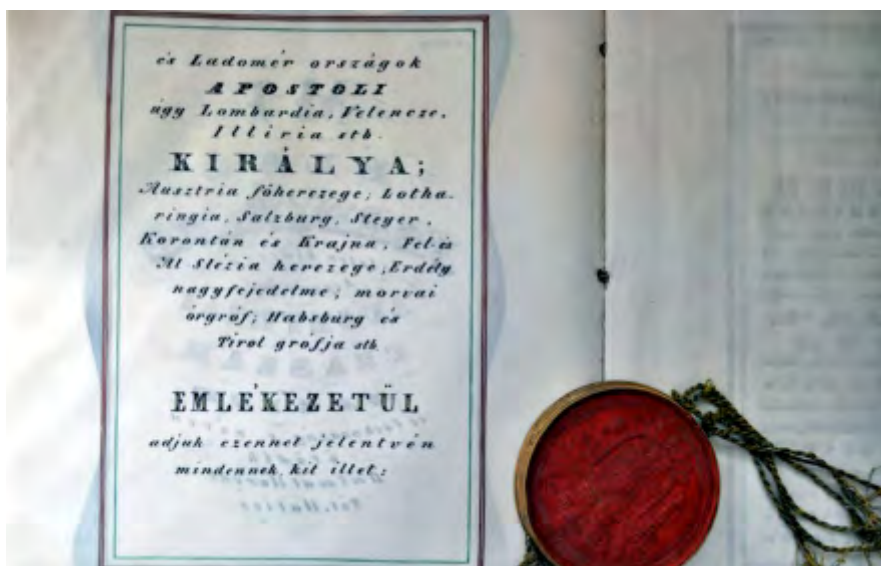 és Ladomér országok
APOSTOLI
úgy Lombardia, Velencze,
Illiria stb.
KIRÁLYA;
Ausztria főherczege; Lotha-
ringia, Salzburg, Steyer,
Korontán és Krajna, Fel-és
Al Slézia herczege, Erdély
nagyfejedelme; morvai
őrgróf; Habsburg és
Tirol grófja stb.
EMLÉKEZETÜL
adjuk ezennel jelentvén
mindennek, kit illet: